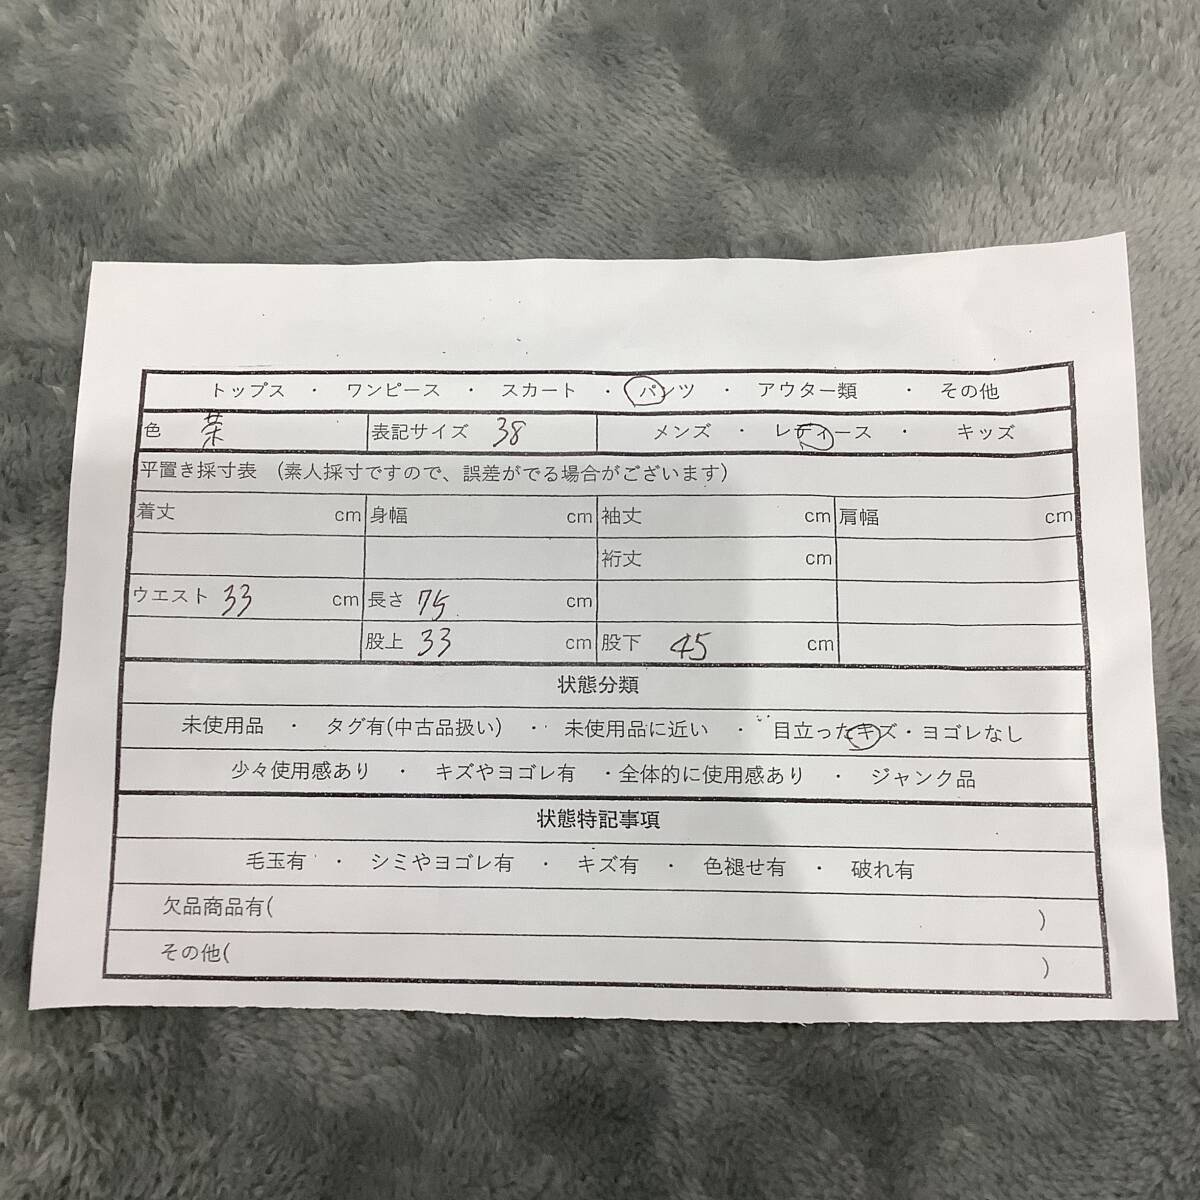 トップス ・ ワンピース ・ スカート ・ パンツ ・ アウター類 ・ その他
色 茶 表記サイズ 38 メンズ ・ レディース ・ キッズ
平置き採寸表 (素人採寸ですので、誤差がでる場合がございます)
着丈 cm 身幅 cm 袖丈 cm 肩幅 cm
裄丈 cm
ウエスト 33 cm 長さ 75 cm
股上 33 cm 股下 45 cm
状態分類
未使用品 ・ タグ有(中古品扱い) ・ 未使用品に近い ・ 目立ったキズ・ヨゴレなし
少々使用感あり ・ キズやヨゴレ有 ・全体的に使用感あり ・ ジャンク品
状態特記事項
毛玉有 ・ シミやヨゴレ有 ・ キズ有 ・ 色褪せ有 ・ 破れ有
欠品商品有( )
その他( )